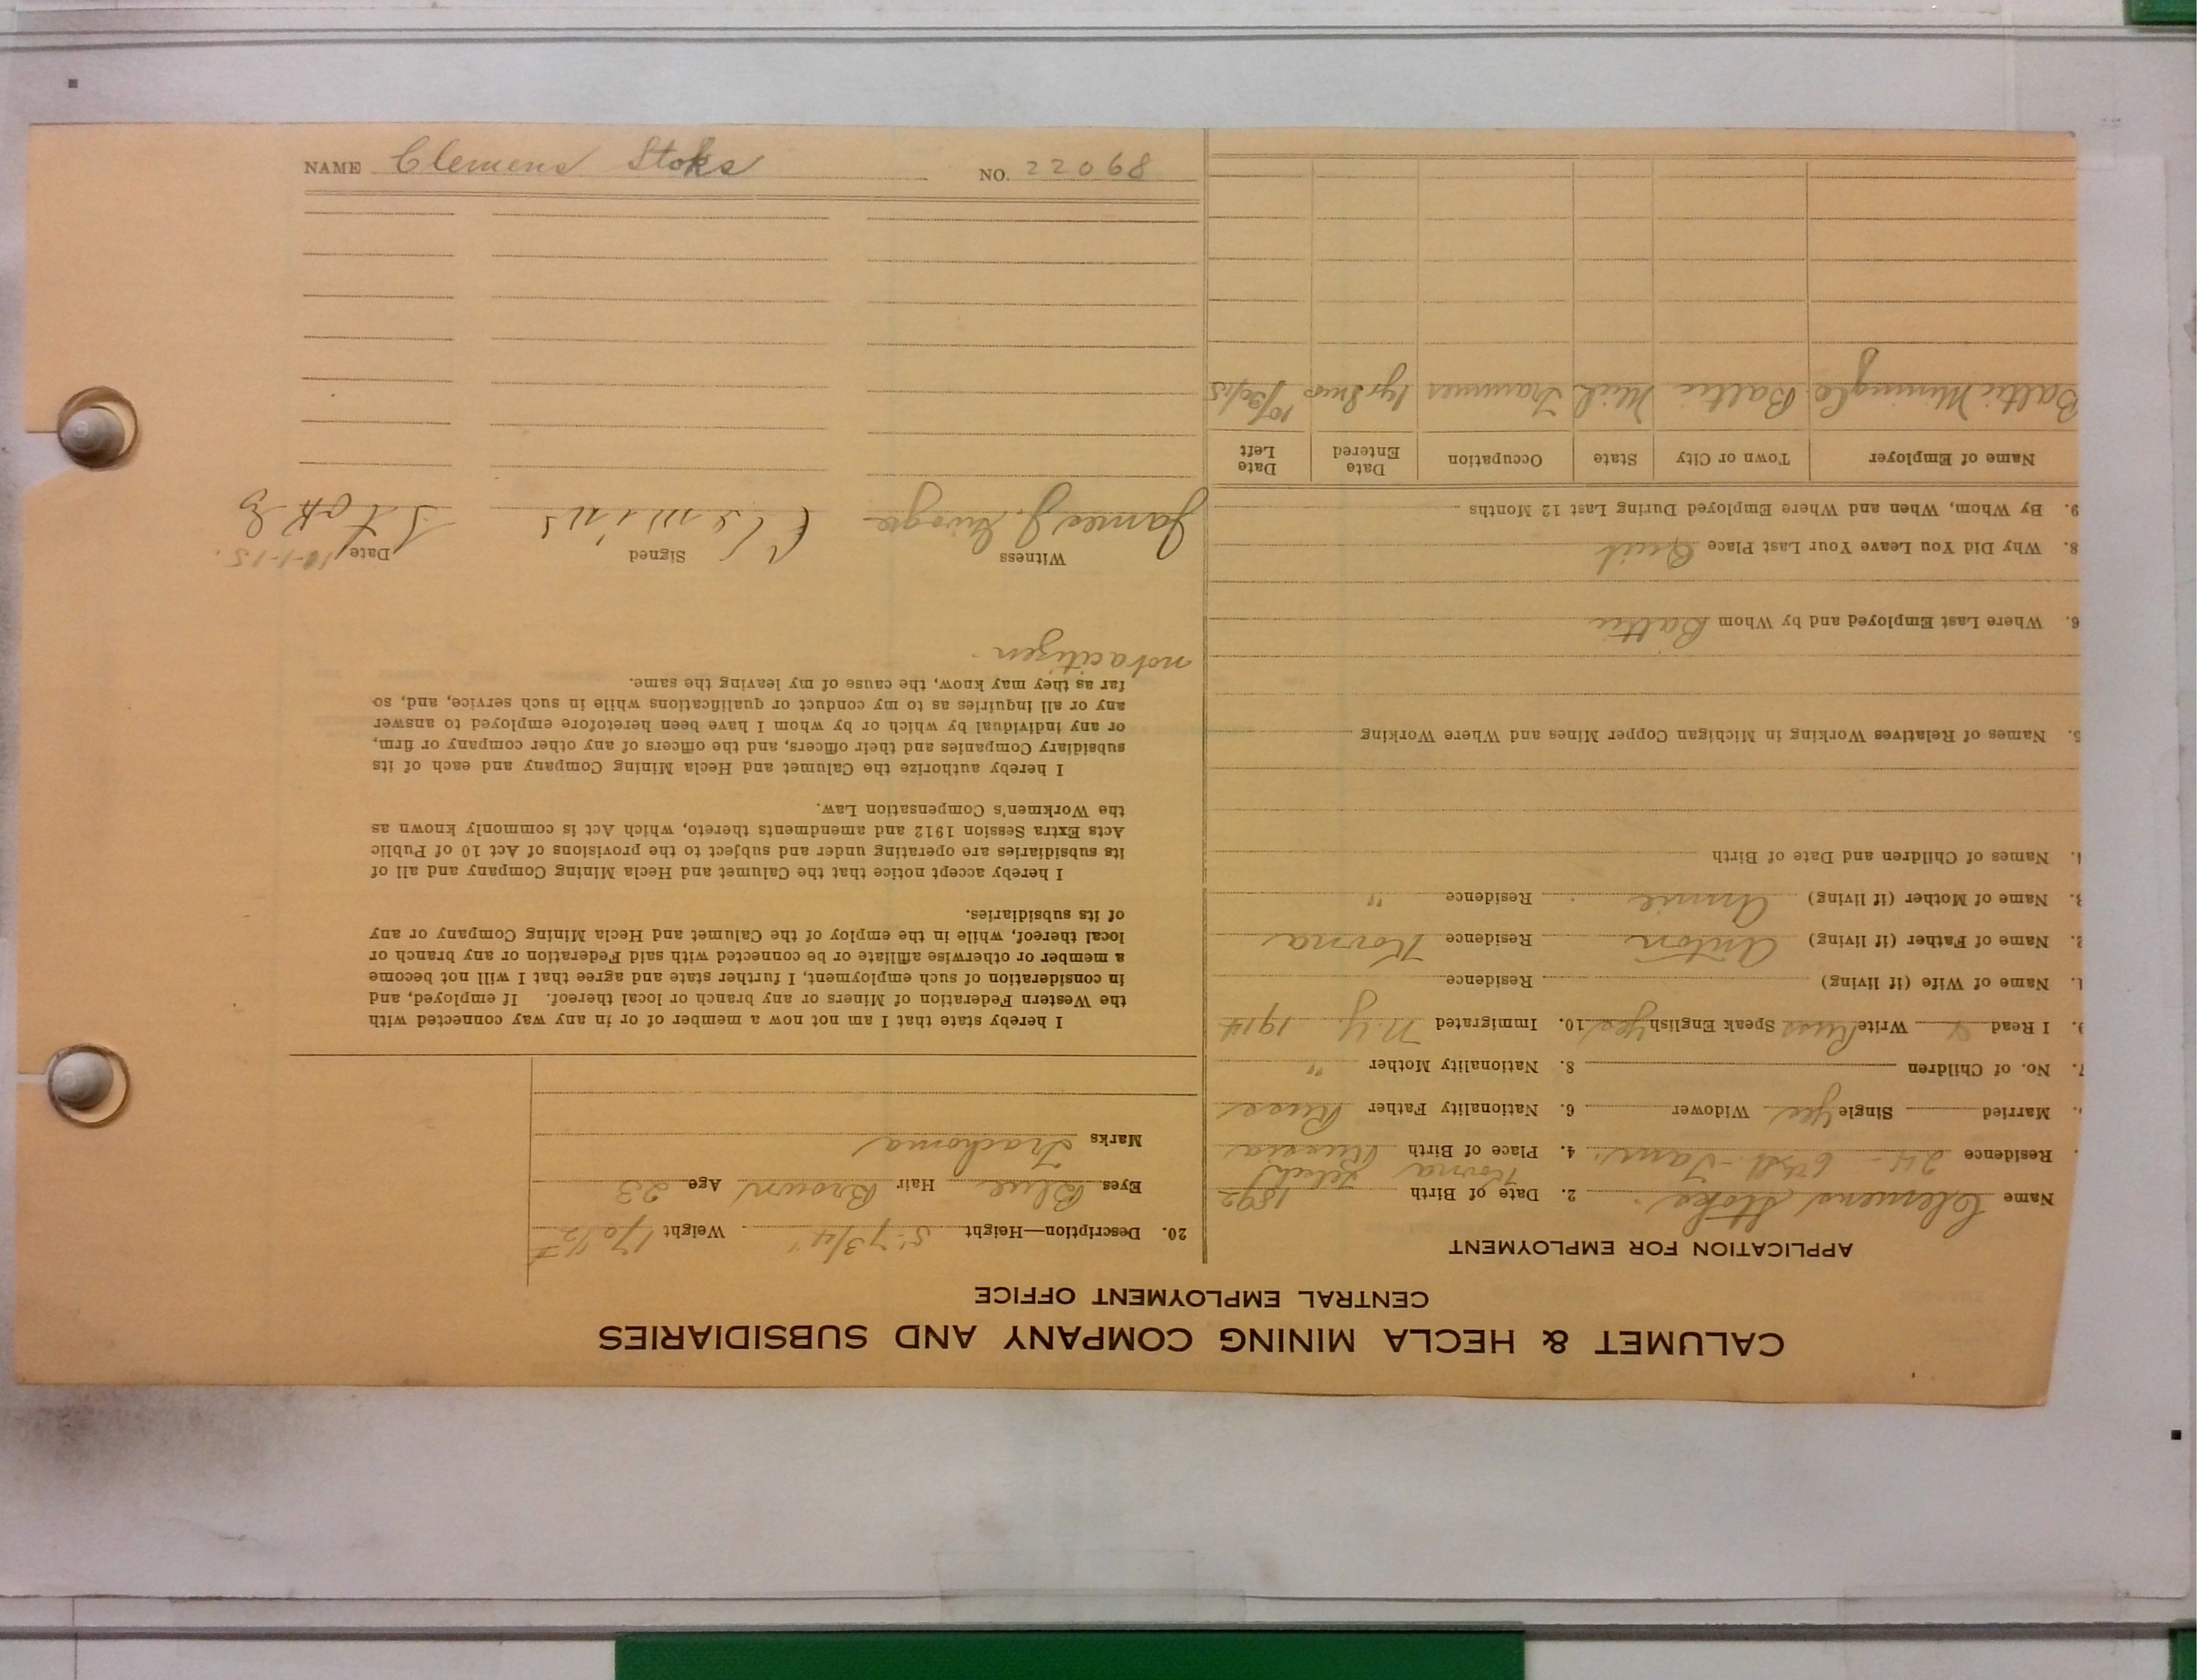 CALUMET & HECLA MINING COMPANY AND SUBSIDIARIES
CENTRAL EMPLOYMENT OFFICE
APPLICATION FOR EMPLOYMENT
Name Clemens Stoks 2. Date of Birth 1892
Residence 24 - 6th St. 4. Place of Birth Kovna Russia
Married Single Yes Widower 6. Nationality Father Russ
7. No. of Children 8. Nationality Mother "
9. I Read Write Russ Speak English Yes 10. Immigrated N.Y. 1914
1. Name of Wife (if living) Residence
2. Name of Father (if living) Anton Residence Kovna
3. Name of Mother (if living) Annie Residence "
4. Names of Children and Date of Birth
5. Names of Relatives Working in Michigan Copper Mines and Where Working
6. Where Last Employed and by Whom Baltic
8. Why Did You Leave Your Last Place Quit
9. By Whom, When and Where Employed During Last 12 Months
Name of Employer Town or City State Occupation Date Entered Date Left
Baltic Mining Co Baltic Mich Trammer 1 yr 8 mos 10/30/15
20. Description—Height 5' 7 3/4" Weight 170 1/2 #
Eyes Blue Hair Brown Age 23
Marks Trachoma
I hereby state that I am not now a member of or in any way connected with
the Western Federation of Miners or any branch or local thereof. If employed, and
in consideration of such employment, I further state and agree that I will not become
a member or otherwise affiliate or be connected with said Federation or any branch or
local thereof, while in the employ of the Calumet and Hecla Mining Company or any
of its subsidiaries.
I hereby accept notice that the Calumet and Hecla Mining Company and all of
its subsidiaries are operating under and subject to the provisions of Act 10 of Public
Acts Extra Session 1912 and amendments thereto, which Act is commonly known as
the Workmen's Compensation Law.
I hereby authorize the Calumet and Hecla Mining Company and each of its
subsidiary Companies and their officers, and the officers of any other company or firm,
or any individual by which or by whom I have been heretofore employed to answer
any or all inquiries as to my conduct or qualifications while in such service, and, so
far as they may know, the cause of my leaving the same.
not a citizen.
Witness Signed Date
James J.
NAME Clemens Stoks NO. 22068